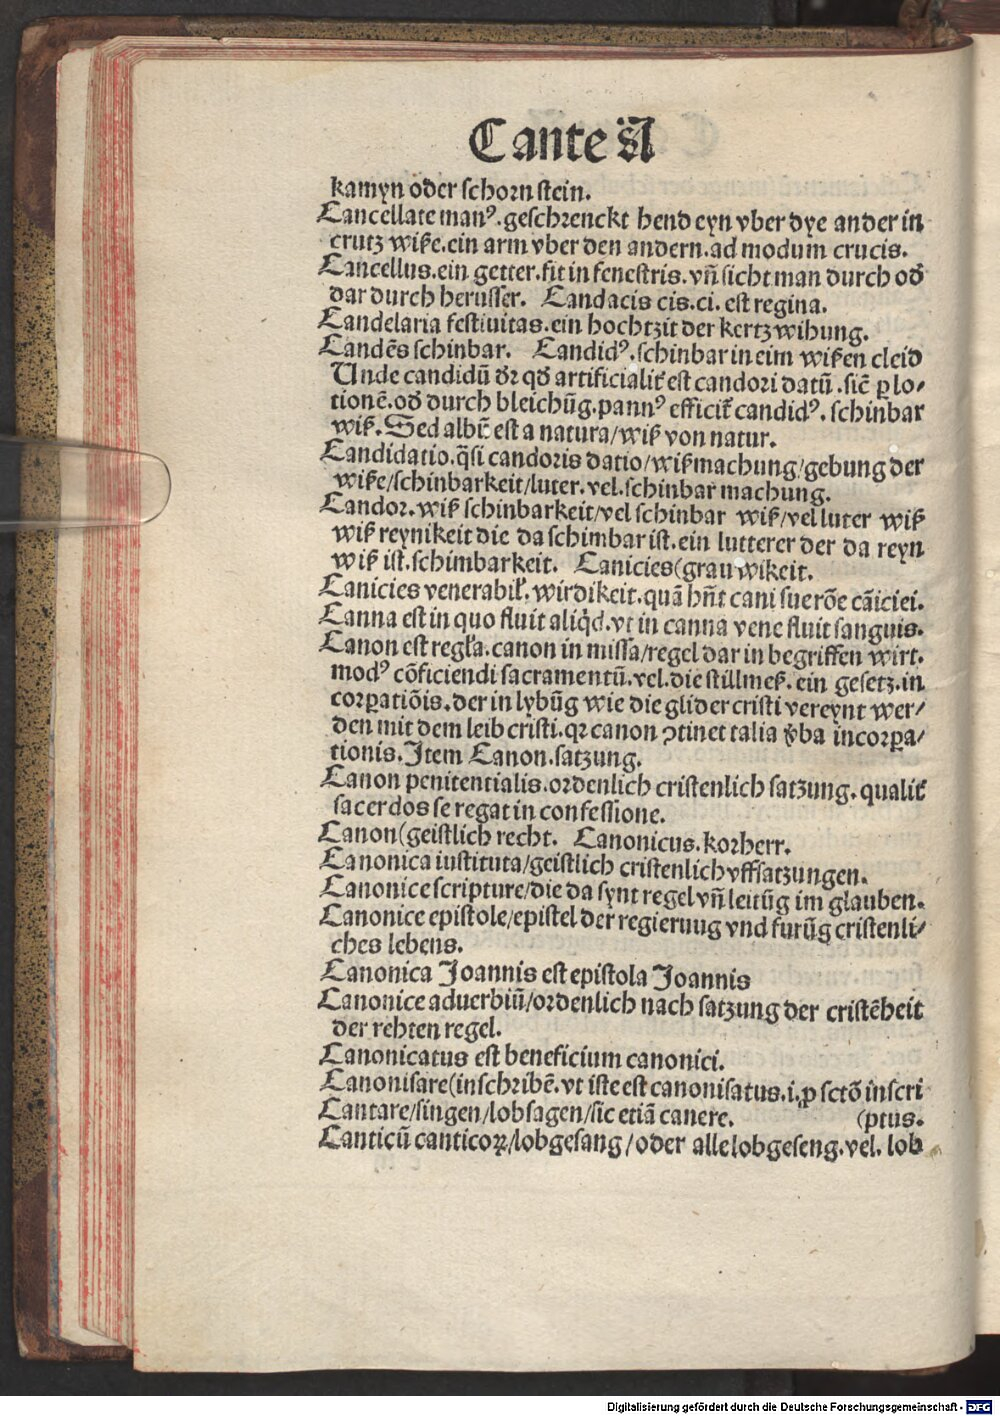 Cante A
kamyn oder schornstein.
Cancellate manꝰ.geschrenckt hend eyn vber dye ander in
crutz wiße.ein arm vber den andern.ad modum crucis.
Cancellus.ein getter.fit in fenestris.vñ sicht man durch od̕
dar durch herusser. Candacis cis.ci. est regina.
Candelaria festiuitas.ein hochtzit der kertzwihung.
Candēs schinbar. Candidꝰ.schinbar in eim wißen cleid
Unde candidū dr̄ qd̕ artificialit̕ est candori datū.sic̄ ꝑ lo⸗
tionē.od̕ durch bleichūg.pannꝰ efficit̕ candidꝰ.schinbar
wiß.Sed albū est a natura/wiß von natur.
Candidatio.q̄si candoris datio/wißmachung/gebung der
wiße/schinbarkeit/luter.vel.schinbar machung.
Candor.wiß schinbarkeit/vel schinbar wiß/vel luter wiß
wiß reynikeit die da schimbar ist.ein lutterer der da reyn
wiß ist.schimbarkeit. Canicies(grau wikeit.
Canicies venerabil̕.wirdikeit.quā hn̄t cani sue rōe cāiciei.
Canna est in quo fluit aliqd̕.vt in canna vene fluit sanguis.
Canon est regl̕a.canon in missa/regel dar in begriffen wirt.
modꝰ cōficiendi sacramentū.vel.die stillmeß.ein gesetz.in
corꝑatiōis.der in lybūg wie die glider cristi vereynt wer⸗
den mit dem leib cristi.qꝛ canon ꝯtinet talia v̕ba incorꝑa⸗
tionis.Item Canon.satzung.
Canon penitentialis.ordenlich cristenlich satzung.qualit̕
sacerdos se regat in confessione.
Canon(geistlich recht. Canonicus.korherr.
Canonica iustituta/geistlich cristenlich vffsatzungen.
Canonice scripture/die da synt regel vñ leitūg im glauben.
Canonice epistole/epistel der regieruug vnd furūg cristenli⸗
ches lebens.
Canonica Joannis est epistola Joannis
Canonice aduerbiū/ordenlich nach satzung der cristēheit
der rehten regel.
Canonicatus est beneficium canonici.
Canonisare(inschribē.vt iste est canonisatus.i.ꝓ sctō inscri
Cantare/singen/lobsagen/sic etiā canere. (ptus.
Canticū canticoꝝ/lobgesang/oder alle lobgeseng.vel.lob
Digitalisierung gefördert durch die Deutsche Forschungsgemeinschaft - DFG